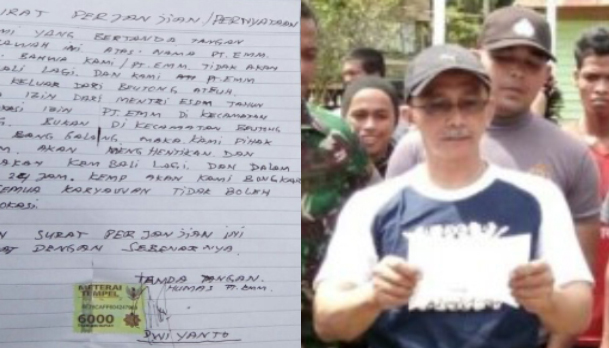 SURAT PERJANJIAN/PERNYATAAN
YANG BERTANDA TANGAN
INI ATAS NAMA PT. EMM.
BAHWA KAMI/PT. EMM TIDAK AKAN
LAGI. DAN KAMI PT. EMM
KELUAR DARI BEUTONG ATEUH.
IZIN DARI MENTRI ESDM TAHUN
IZIN PT. EMM DI KECAMATAN
BUKAN DI KECAMATAN BEUTONG
BANG GALANG MAKA KAMI PIHAK
AKAN MENGHENTIKAN DAN
KEMBALI LAGI. DAN DALAM
24 JAM. KEMP AKAN KAMI BONGKAR
SEMUA KARYAWAN TIDAK BOLEH
SURAT PERJANJIAN INI
DENGAN SEBENARNYA.
TANDA TANGAN.
HUMAS PT. EMM.
METERAI
TEMPEL
6000
DWI YANTO